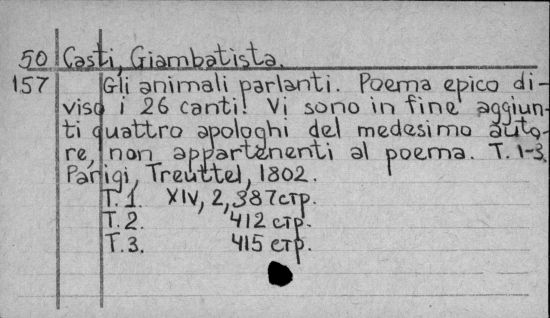 50 Casti, Giambatista.
157 Gli animali parlanti. Poema epico di-
viso i 26 canti! Vi sono in fine aggiun-
ti quattro apologhi del medesimo auto-
re, non appartenenti al poema. T. 1-3.
Parigi, Treuttel, 1802.
T. 1. XIV, 2, 387 стр.
T. 2. 412 стр.
T. 3. 415 стр.